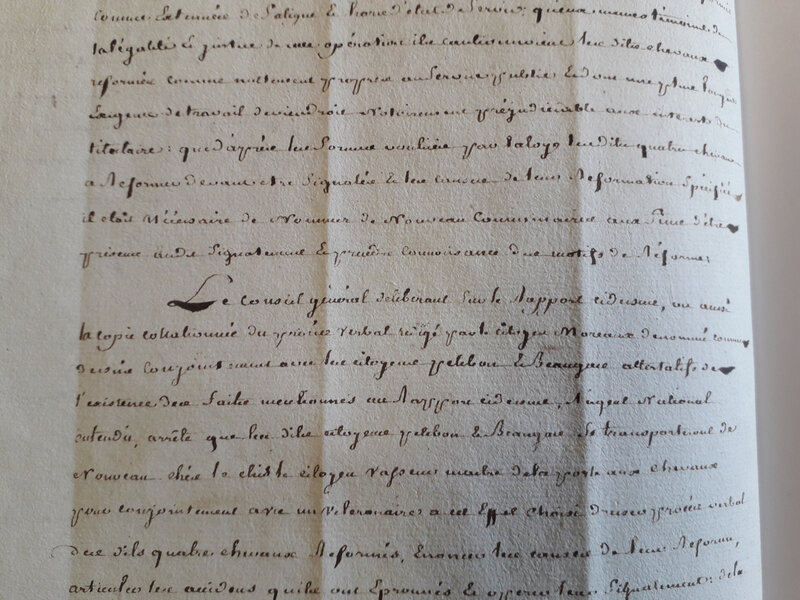 comme Extenuée de fatigue & hors d'etat de Service: queux mesmes témoins de
la légalité & justice de cette opération ils cautionnoient les dits chevaux
reformés comme nullement propres au Service public & dont une plus longue
Exigence de travail deviendroit Notoirement préjudiciable aux interets du
titulaire: que d'après les formes voulues par la loy, les dits quatre chevaux
a Reformer devant etre Signalés & les causes de leur Reformation Spécifiées
il etoit Nécessaire de Nommer de Nouveaux Commissaires aux fins d'etre
présents audit Signalement & prendre connoissance des motifs de Réforme;
Le Conseil général déliberant Sur le Rapport cidessus, vu aussi
la copie collationnée du procès verbal rédigé par le citoyen Moreaux denommé comme
dessus conjointement avec les citoyens pelibon & Beaugene attestatifs de
l'existence des faits mentionnés au Rapport cidessus, l'Agent National
entendu, arrête que les dits citoyens pelibon & Beaugene Se transporteront de
Nouveau chés le dit citoyen vasseur maitre de la poste aux chevaux
pour conjointement avec un veteronaire a cet Effet choisi dresser procès verbal
des dits quatre chevaux Reformés, Enoncer les causes de leur Reforme,
articuler les accidens qu'ils ont Eprouvés & opérer leur Signalement: de la